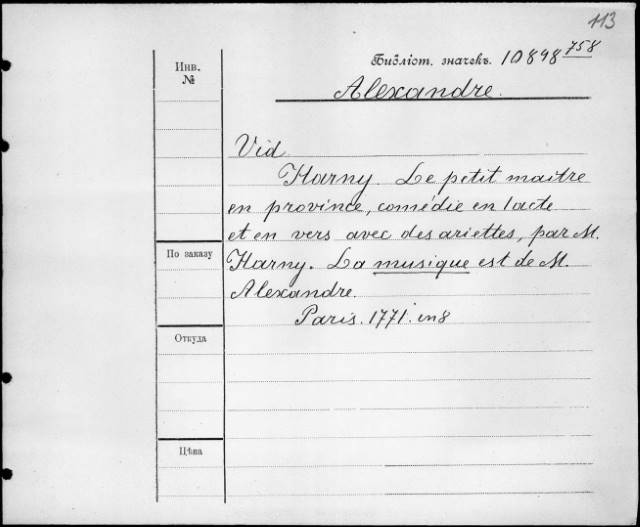 113
Инв. №
Библіот. значекъ. 10898 758
Alexandre.
Vid
Harny. Le petit maitre
en province, comédie en 1 acte
et en vers avec des ariettes, par M.
Harny. La musique est de M.
Alexandre.
Paris. 1771. in 8
По заказу
Откуда
Цѣна